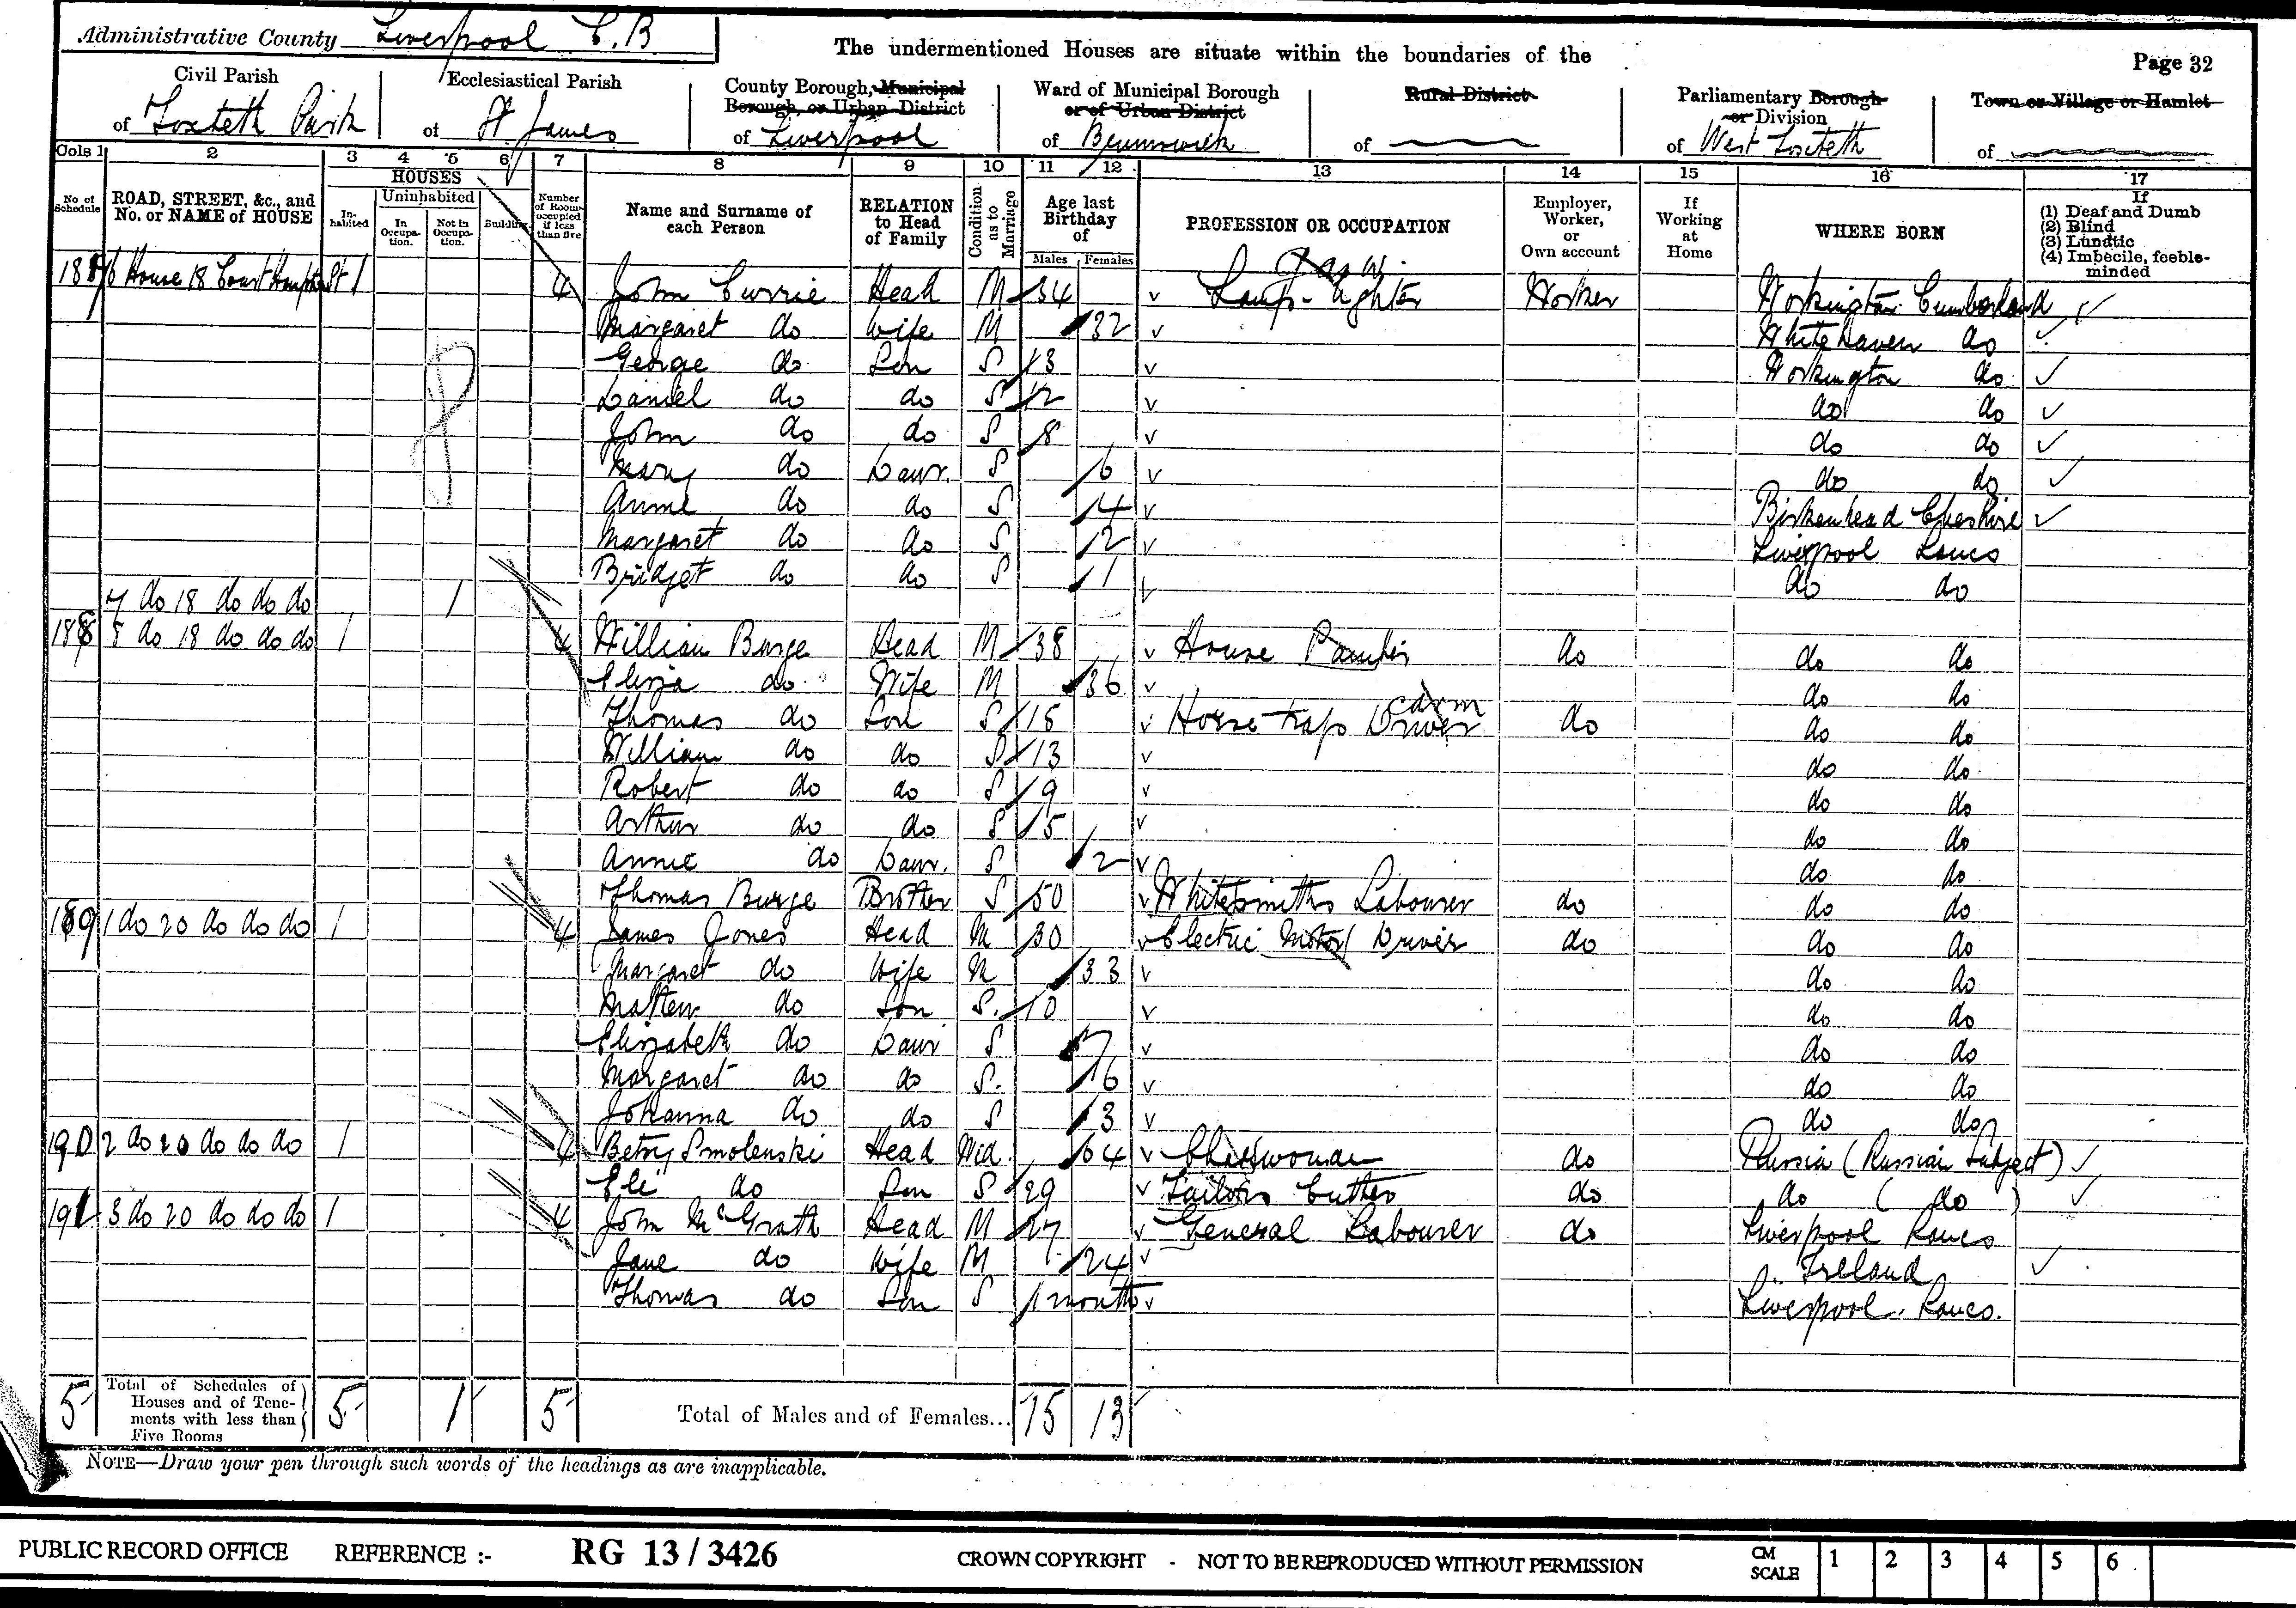 Administrative County Liverpool C.B
The undermentioned Houses are situate within the boundaries of the
Page 32
Civil Parish of Toxteth Park
Ecclesiastical Parish of St James
County Borough, Municipal Borough, or Urban District of Liverpool
Ward of Municipal Borough or of Urban District of Brunswick
Rural District of
Parliamentary Borough or Division of West Toxteth
Town or Village or Hamlet of
Cols 1 2 3 4 5 6 7 8 9 10 11 12 13 14 15 16 17
No. of Schedule
ROAD, STREET, &c., and No. or NAME of HOUSE
HOUSES
Inhabited
Uninhabited
In Occupation.
Not in Occupation.
Building
Number of Rooms occupied if less than five
Name and Surname of each Person
RELATION to Head of Family
Condition as to Marriage
Age last Birthday of
Males Females
PROFESSION OR OCCUPATION
Employer, Worker, or Own account
If Working at Home
WHERE BORN
If
(1) Deaf and Dumb
(2) Blind
(3) Lunatic
(4) Imbecile, feeble-minded
187 6 House 18 Court St 1 4 John Currie Head M 34 Lamp-lighter Worker Workington Cumberland
Margaret do Wife M 32 Whitehaven do
George do Son S 13 Workington do
Daniel do do S 12 do do
John do do S 8 do do
Mary do Daur. S 6 do do
Annie do do S 4 Birkenhead Cheshire
Margaret do do S 2 Liverpool Lancs
Bridget do do S 1 do do
7 do 18 do do do 1
188 8 do 18 do do do 1 4 William Burge Head M 38 House Painter do do do
Eliza do Wife M 36 do do
Thomas do Son S 15 Horse trap Driver carm do do do
William do do S 13 do do
Robert do do S 9 do do
Arthur do do S 5 do do
Annie do Daur. S 2 do do
Thomas Burge Brother S 50 Whitesmiths Labourer do do do
189 1 do 20 do do do 1 4 James Jones Head M 30 Electric Motor Driver do do do
Margaret do Wife M 33 do do
Mattew do Son S. 10 do do
Elizabeth do Daur S 7 do do
Margaret do do S. 6 do do
Johanna do do S 3 do do
190 2 do 20 do do do 1 4 Betsy Smolenski Head Wid. 64 Charwoman do Russia (Russian Subject)
Eli do Son S 29 Tailors Cutter do do (do)
191 3 do 20 do do do 1 4 John McGrath Head M 27 General Labourer do Liverpool Lancs
Jane do Wife M 24 Ireland
Thomas do Son S 1 month Liverpool. Lancs.
5 Total of Schedules of Houses and of Tenements with less than Five Rooms 5 1 5 Total of Males and of Females... 15 13
NOTE—Draw your pen through such words of the headings as are inapplicable.
PUBLIC RECORD OFFICE REFERENCE :- RG 13 / 3426 CROWN COPYRIGHT - NOT TO BE REPRODUCED WITHOUT PERMISSION CM SCALE 1 2 3 4 5 6